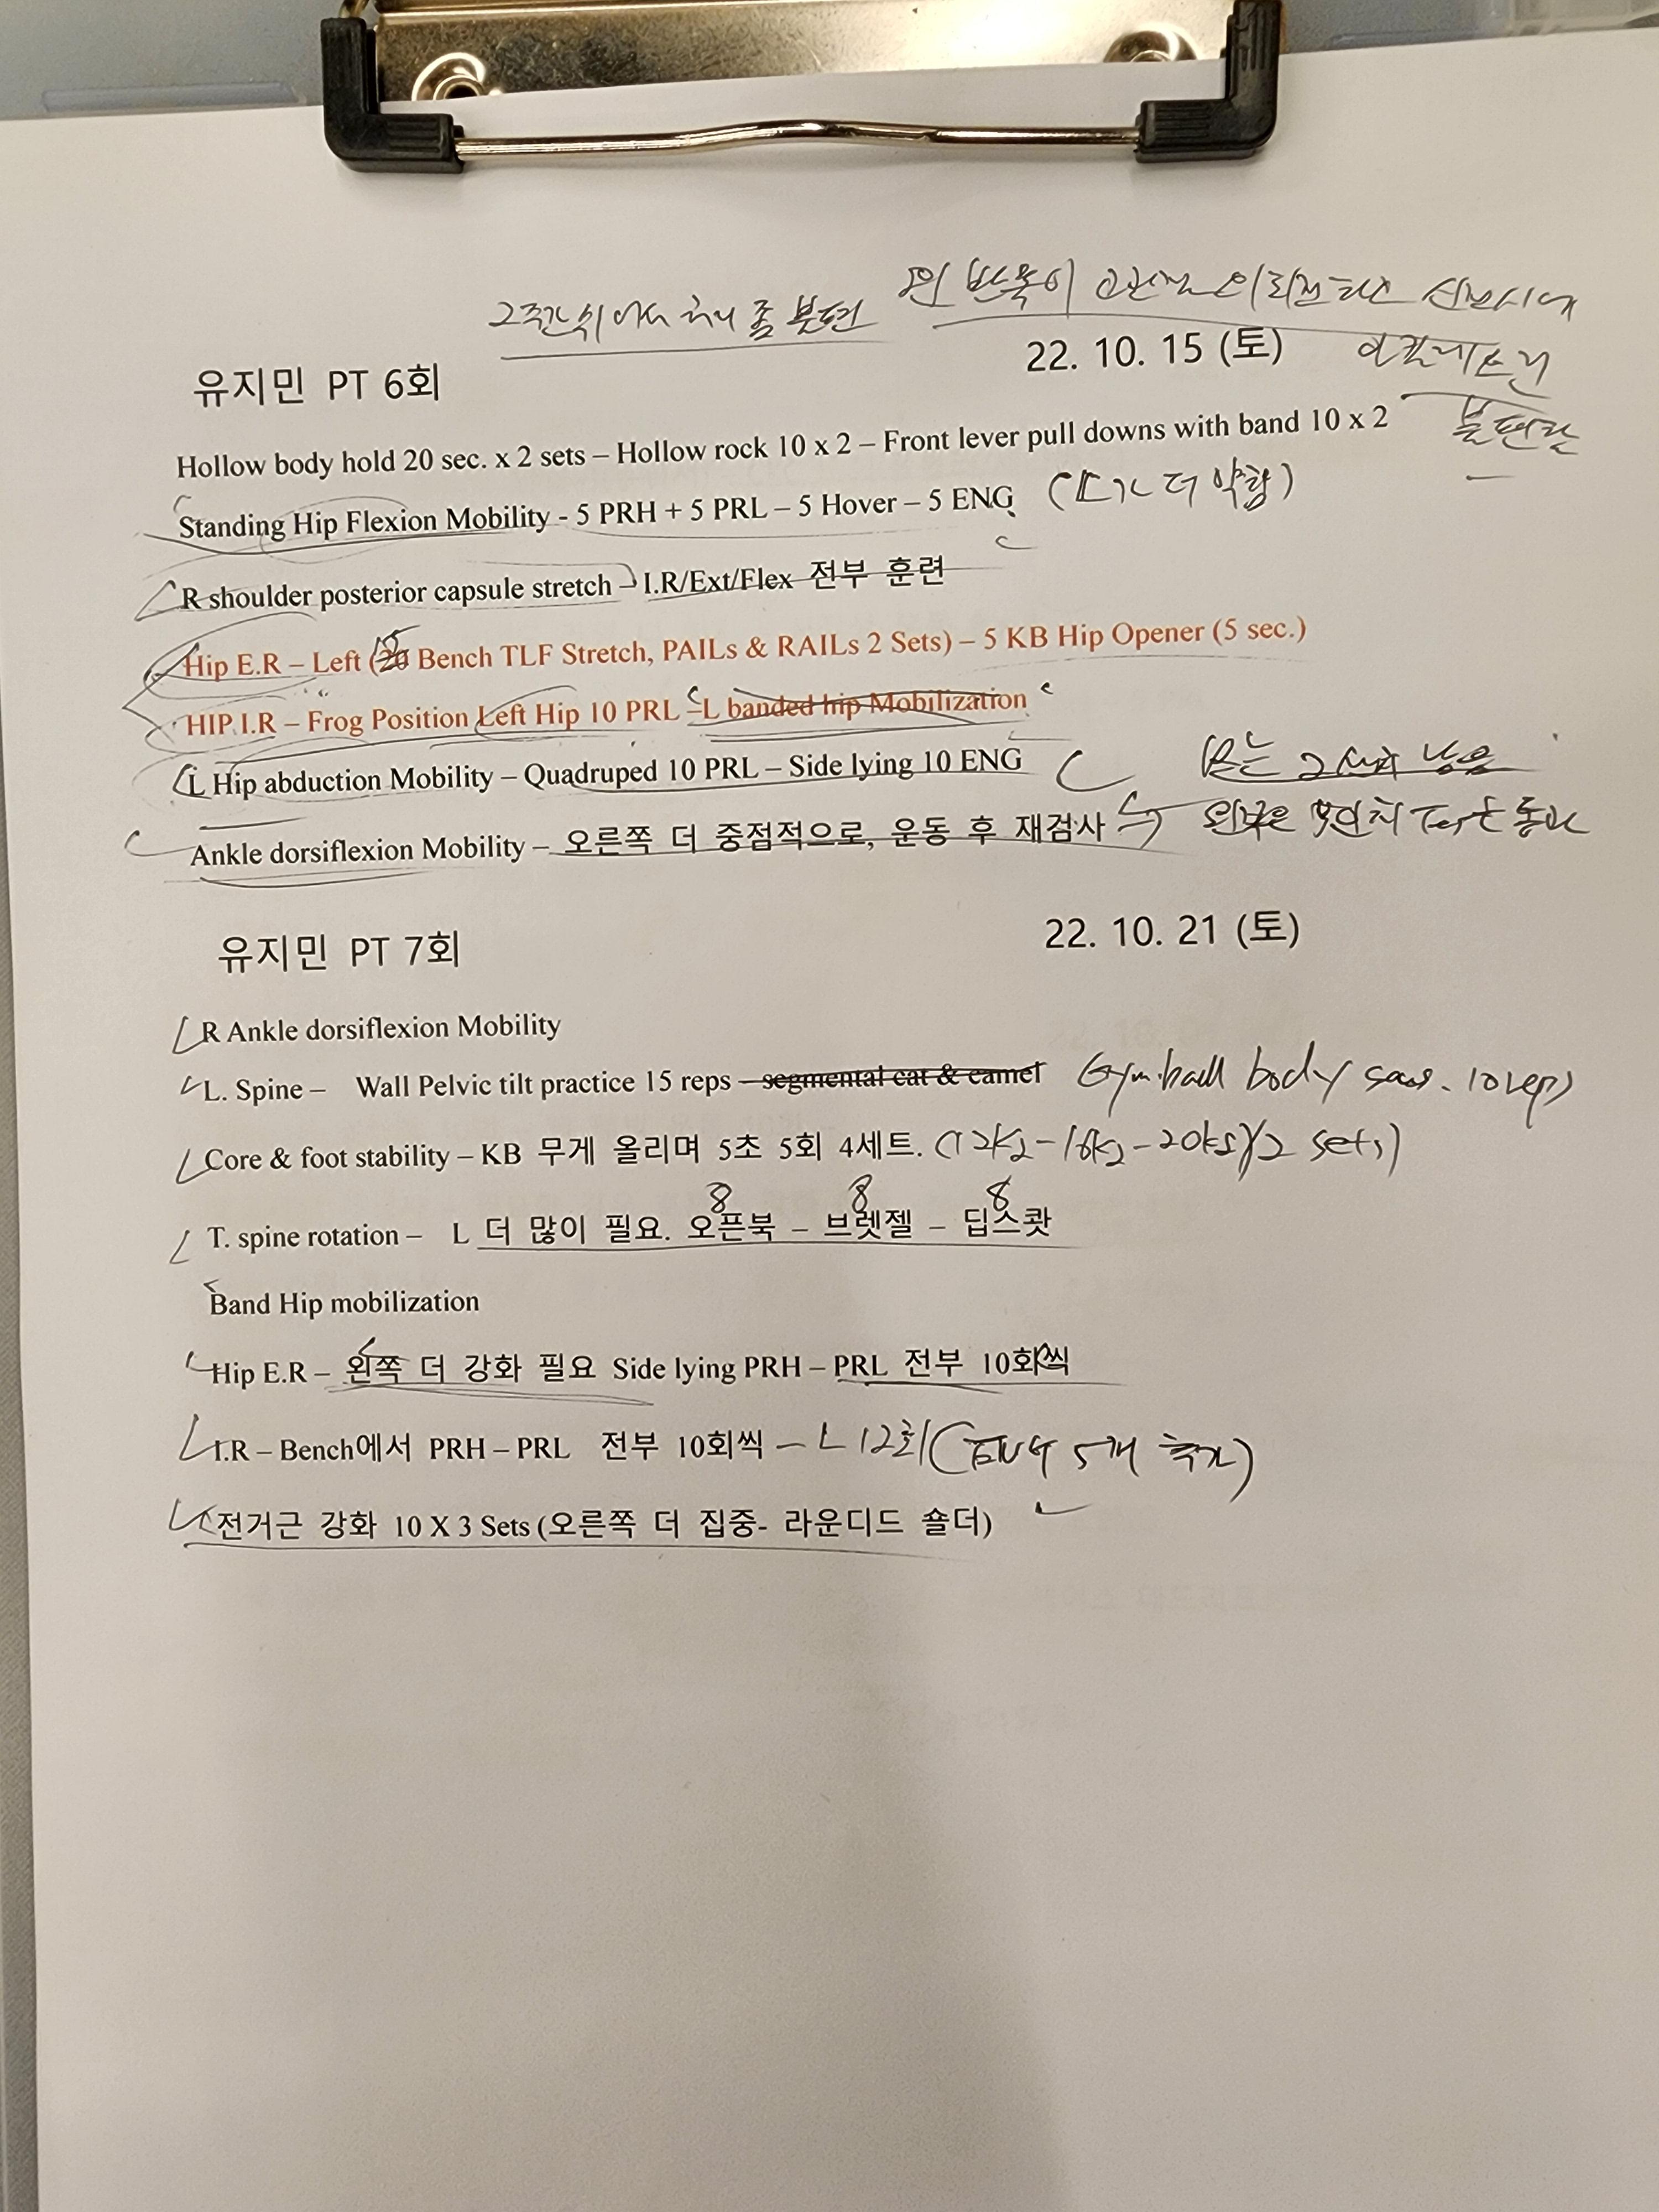 2주간 쉬어서 허리 좀 불편
왼 반복이 고관절 외회전 하고
22. 10. 15 (토)
유지민 PT 6회
불편함
Hollow body hold 20 sec. x 2 sets – Hollow rock 10 x 2 – Front lever pull downs with band 10 x 2
Standing Hip Flexion Mobility - 5 PRH + 5 PRL – 5 Hover – 5 ENG (L가 더 약함)
R shoulder posterior capsule stretch – I.R/Ext/Flex 전부 훈련
Hip E.R – Left (20 15 Bench TLF Stretch, PAILs & RAILs 2 Sets) – 5 KB Hip Opener (5 sec.)
HIP I.R – Frog Position Left Hip 10 PRL – L banded hip Mobilization
L Hip abduction Mobility – Quadruped 10 PRL – Side lying 10 ENG
Ankle dorsiflexion Mobility – 오른쪽 더 중점적으로, 운동 후 재검사 왼쪽은 Test 통과
유지민 PT 7회 22. 10. 21 (토)
R Ankle dorsiflexion Mobility
L. Spine – Wall Pelvic tilt practice 15 reps – segmental cat & camel Gym ball body saw. 10 reps
Core & foot stability – KB 무게 올리며 5초 5회 4세트. (12kg-16kg-20kg)(2 sets)
8 8 8
T. spine rotation – L 더 많이 필요. 오픈북 – 브렛젤 – 딥스쾃
Band Hip mobilization
Hip E.R – 왼쪽 더 강화 필요 Side lying PRH – PRL 전부 10회씩
I.R – Bench에서 PRH – PRL 전부 10회씩 – L 12회 (ENG 5개 추가)
전거근 강화 10 X 3 Sets (오른쪽 더 집중- 라운디드 숄더)